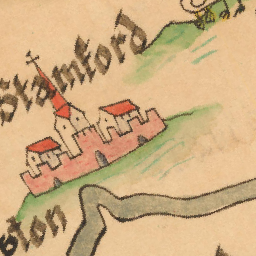 Stamford
ton